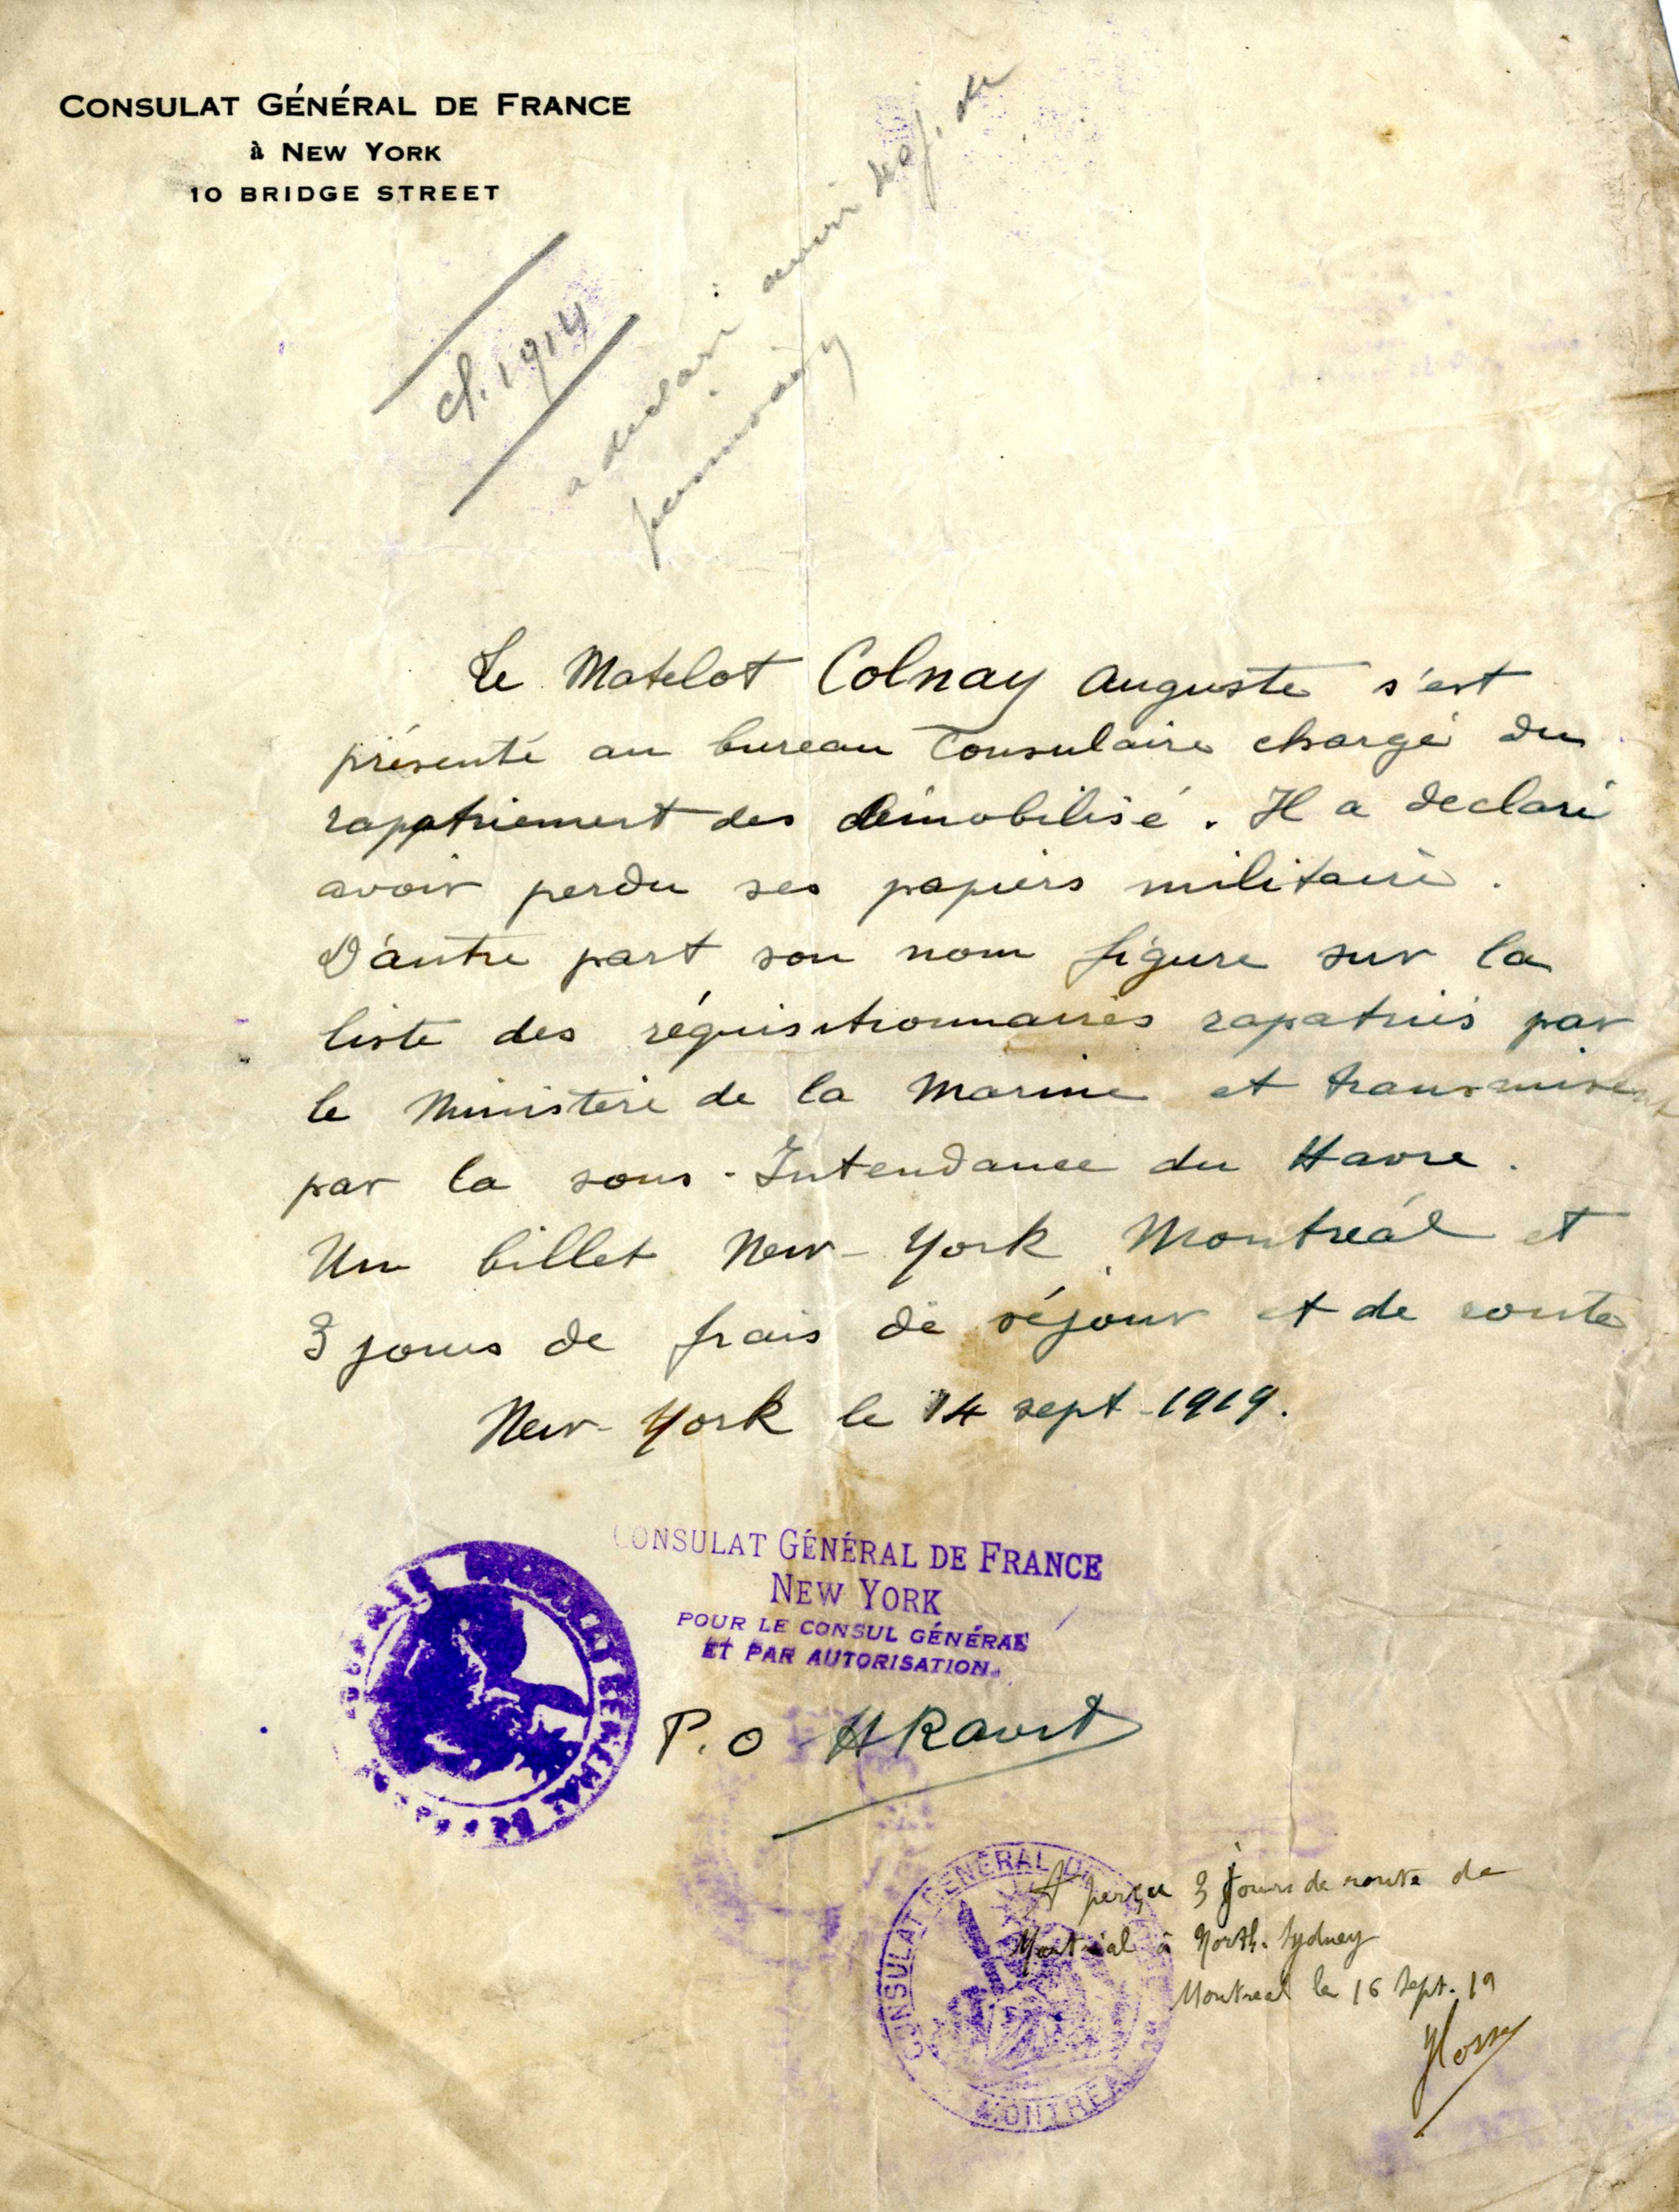 CONSULAT GÉNÉRAL DE FRANCE
à NEW YORK
10 BRIDGE STREET
cl. 1914
a declaré avoir
Le Matelot Colnay Auguste s'est
présenté au bureau Consulaire chargé du
rappatriement des démobilisé. Il a declaré
avoir perdu ses papiers militaire.
D'autre part son nom figure sur la
liste des réquisitionnaires rapatriés par
le Ministère de la Marine et
par la sous-Intendance du Havre.
Un billet New-York Montréal et
3 jours de frais de séjour et de route
New-York le 14 sept-1919.
CONSULAT GÉNÉRAL DE FRANCE
NEW YORK
POUR LE CONSUL GÉNÉRAL
ET PAR AUTORISATION.
P.O
CONSULAT GÉNÉRAL DE
MONTREAL
A perçu 3 jours de route de
Montréal à North-Sydney
Montreal le 16 Sept. 19